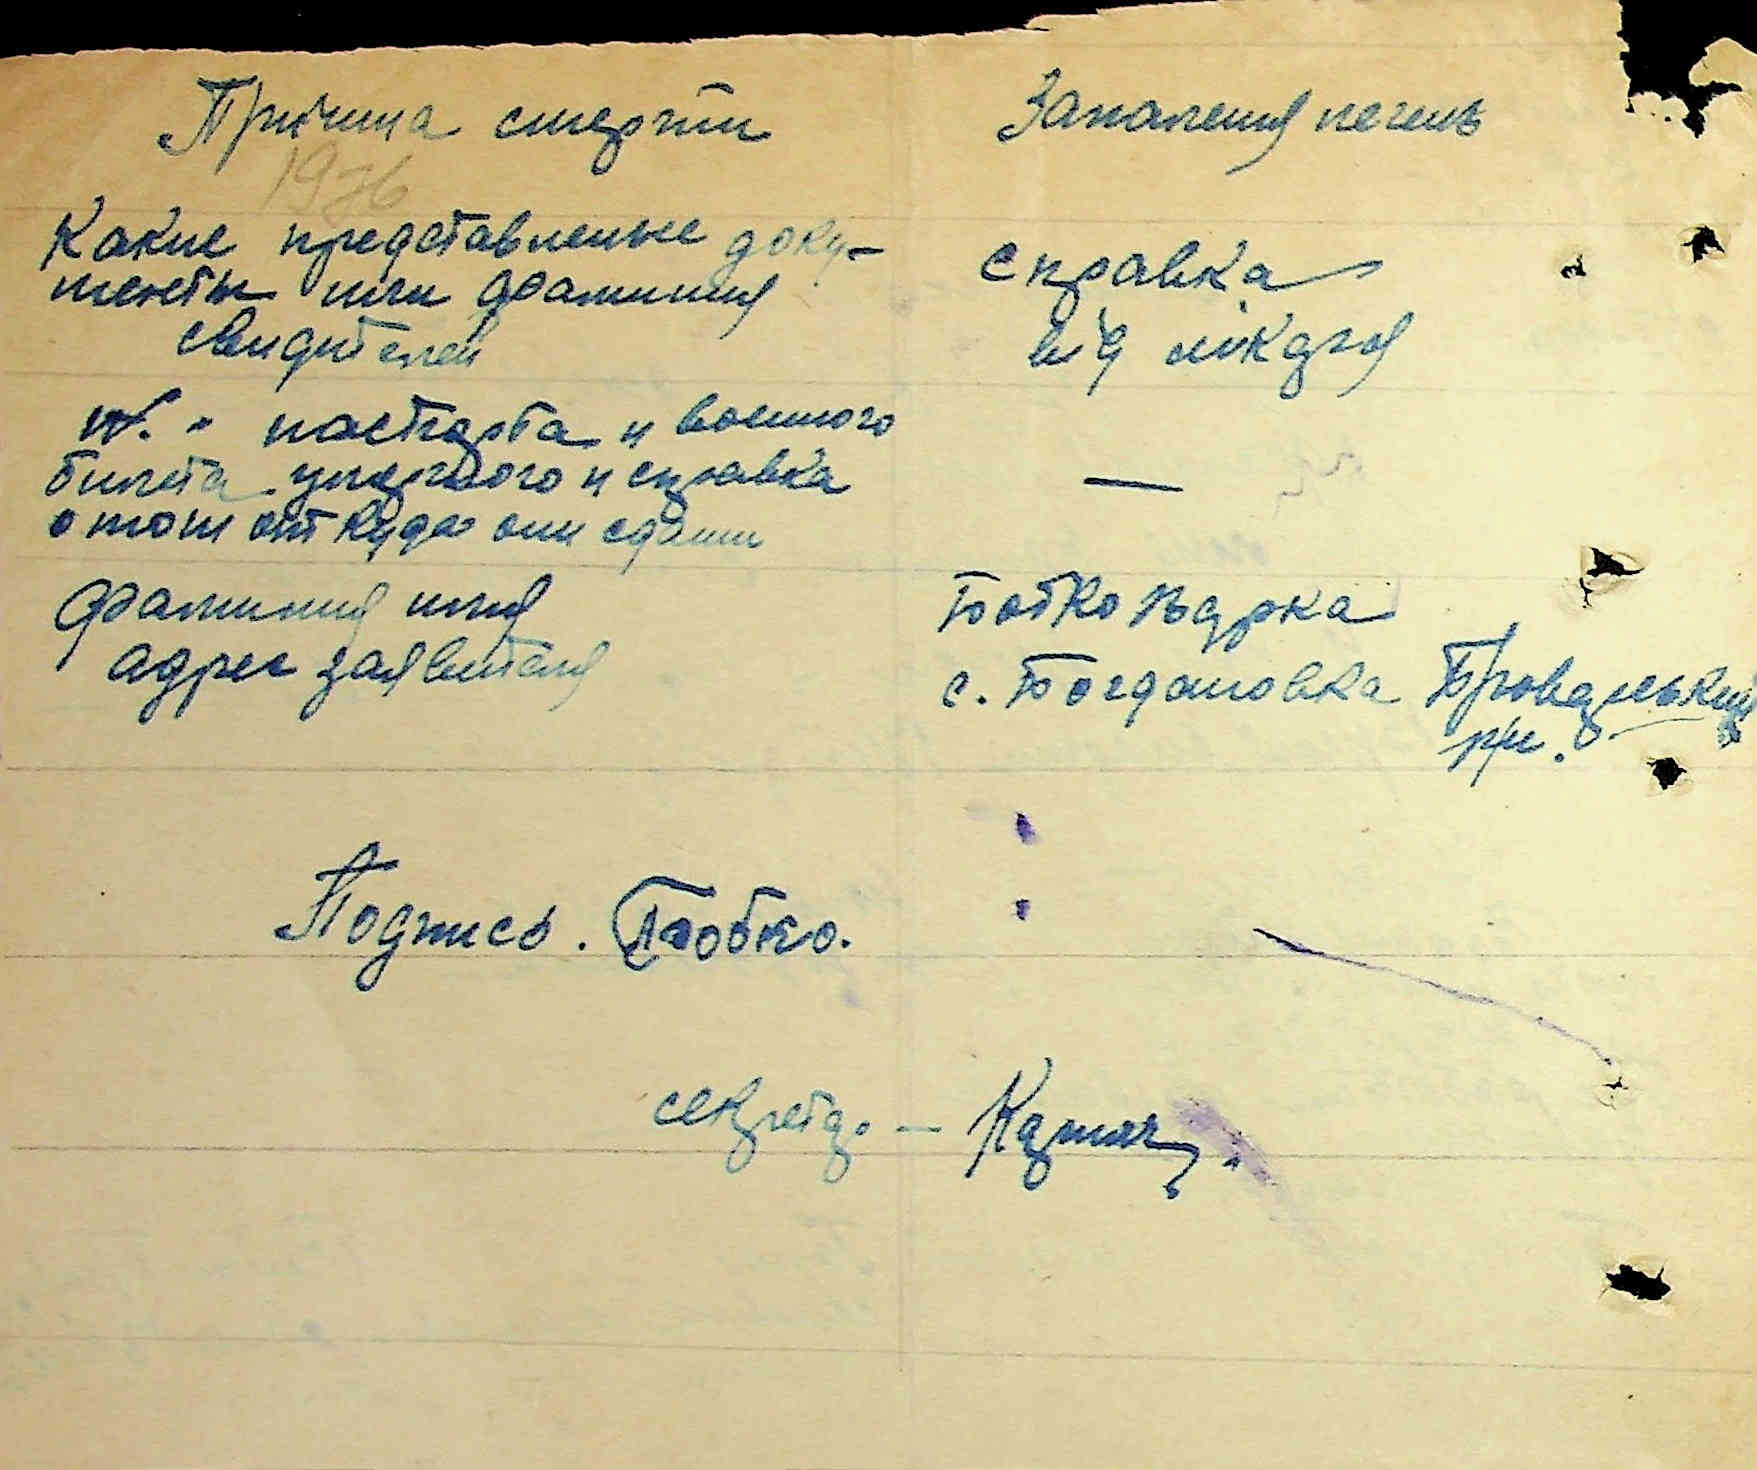 Причина смерти
Запаления печень
1976
Какие представленые доку-
менты или фамилия
свидителей
справка
від лікаря
№. " паспорта и военного
билета умершого и справка
о том от куда они сдани
—
Фамилия имя
адрес заявителя
Бобко
с. Богдановка Броварський
р/н.
Подпись. Бобко.
секретар. —